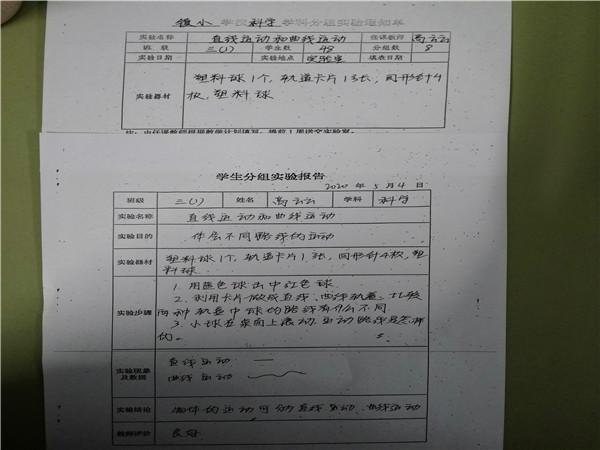 镇小 学校 科学 学科分组实验通知单
实验名称 直线运动和曲线运动 任课教师 高云云
班级 三(1) 学生数 48 分组数 8
实验日期 实验地点 实验室 填表日期
塑料球1个，轨道卡片1张，回形针4
实验器材 枚，塑料球
注：由任课教师根据教学计划填写，提前1周送交实验室。
学生分组实验报告
2020 年 5 月 4 日
班级 三(1) 姓名 高云云 学科 科学
实验名称 直线运动和曲线运动
实验目的 体会不同路线的运动
实验器材 塑料球1个，轨道卡片1张，回形针4枚，塑
料球
1. 用蓝色球击中红色球
2. 利用卡片做成直线、曲线轨道，比较
实验步骤 两种轨道中球的路线有什么不同
3. 小球在桌面上滚动，运动路线是怎样
的。
实验现象 直线运动
及数据 曲线运动
实验结论 物体的运动可分直线运动、曲线运动
教师评价 良好